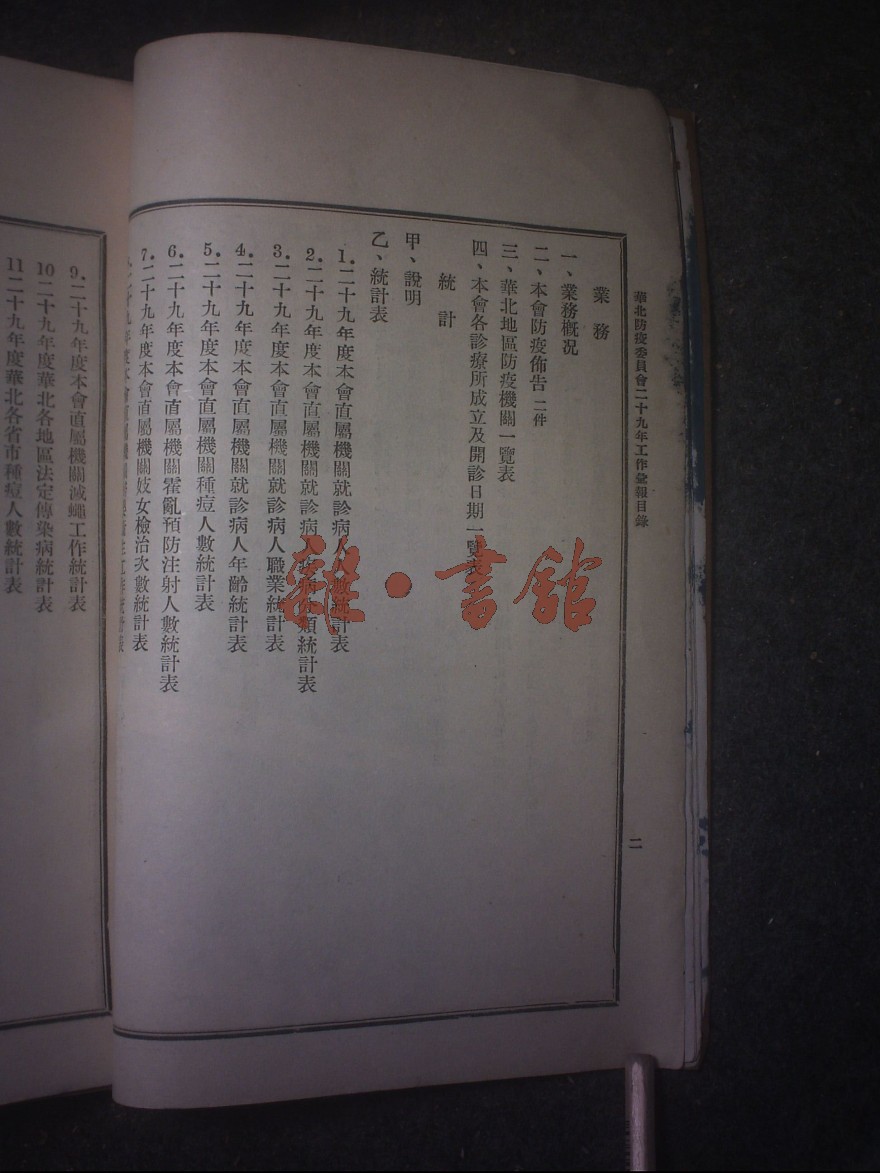 華北防疫委員會二十九年工作彙報目錄
二
業務
一、業務概況
二、本會防疫佈告 二件
三、華北地區防疫機關一覽表
四、本會各診療所成立及開診日期一覽表
統計
甲、說明
乙、統計表
1.二十九年度本會直屬機關就診病人人數統計表
2.二十九年度本會直屬機關就診病人疾病分類統計表
3.二十九年度本會直屬機關就診病人職業統計表
4.二十九年度本會直屬機關就診病人年齡統計表
5.二十九年度本會直屬機關種痘人數統計表
6.二十九年度本會直屬機關霍亂預防注射人數統計表
7.二十九年度本會直屬機關妓女檢治次數統計表
二十九年度本會直屬機關
工作統計表
9.二十九年度本會直屬機關滅蠅工作統計表
10二十九年度華北各地區法定傳染病統計表
11二十九年度華北各省市種痘人數統計表
雜·書館